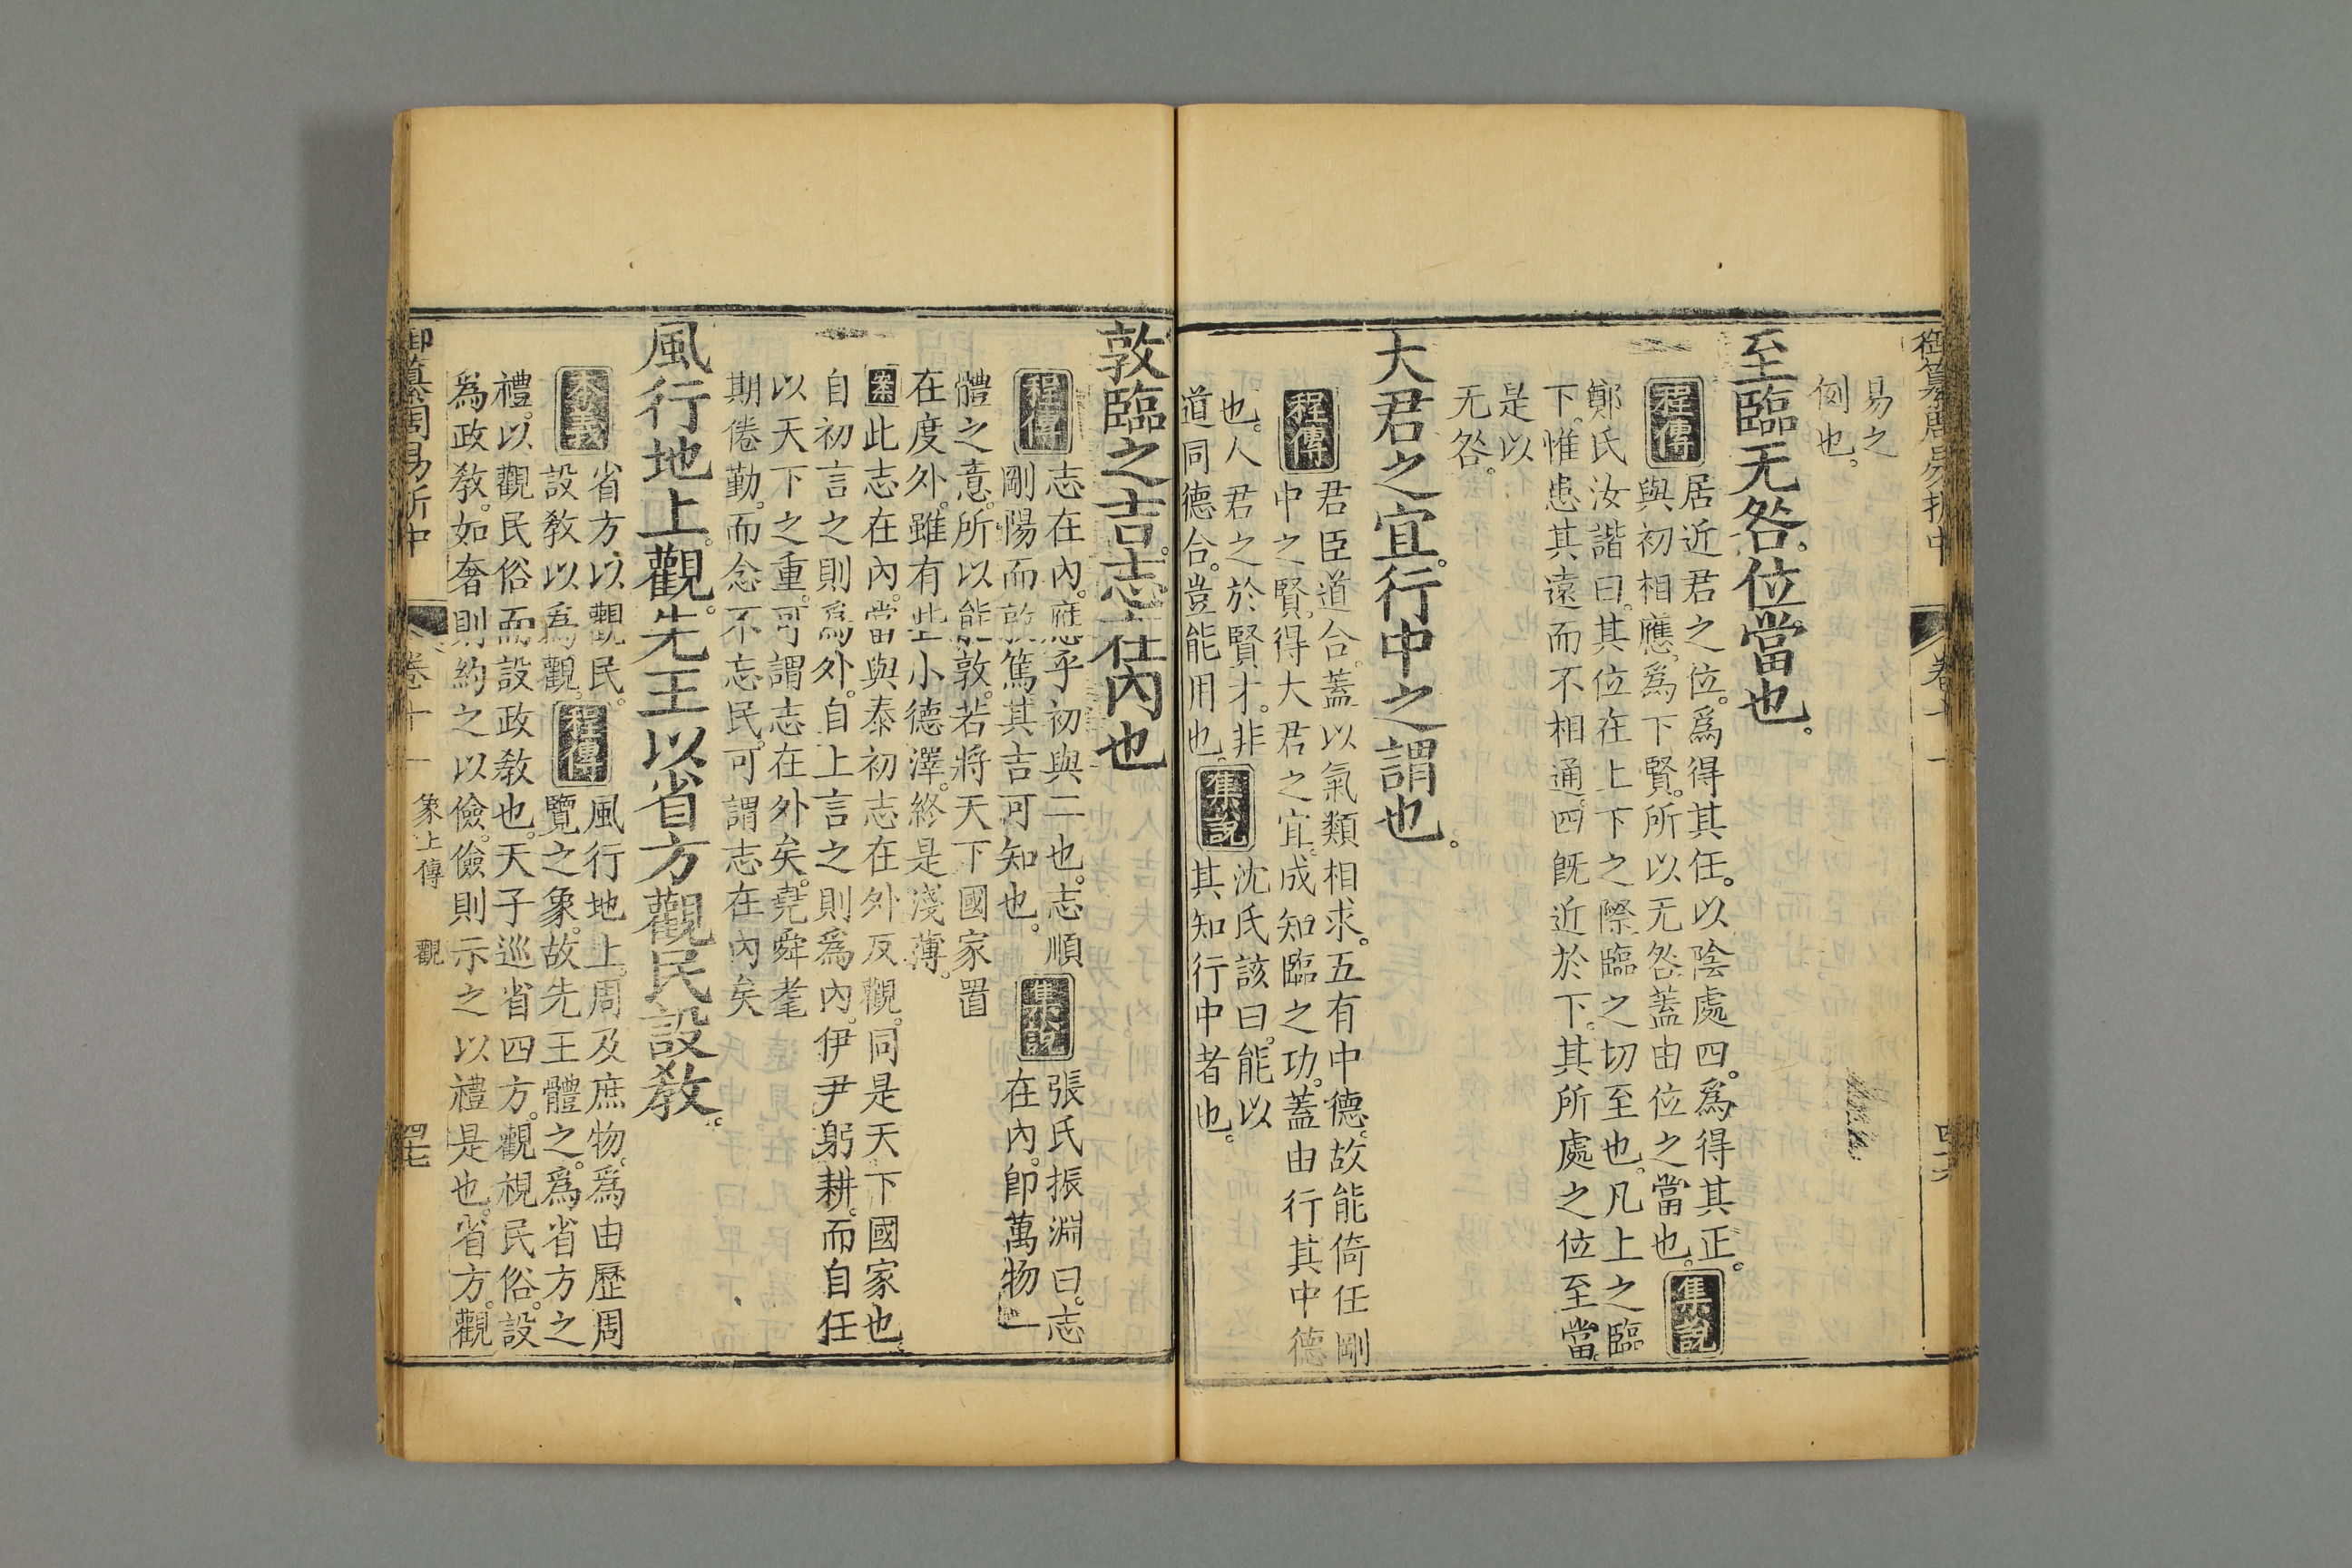 御纂周易折中
卷十一
四十六
易之
例也。
至臨无咎。位當也。
程傳
居近君之位。爲得其任。以陰處四。爲得其正。
與初相應。爲下賢。所以无咎。蓋由位之當也。
集說
鄭氏汝諧曰。其位在上下之際。臨之切至也。凡上之臨
下。惟患其遠而不相通。四旣近於下。其所處之位至當。
是以
无咎。
大君之宜。行中之謂也。
程傳
君臣道合。蓋以氣類相求。五有中德。故能倚任剛
中之賢。得大君之宜。成知臨之功。蓋由行其中德
也。人君之於賢才。非
道同德合。豈能用也。
集說
沈氏該曰。能以
其知行中者也。
敦臨之吉。志在內也
程傳
志在內。應乎初與二也。志順
剛陽而敦篤。其吉可知也。
集說
張氏振淵曰。志
在內。卽萬物一
體之意。所以能敦。若將天下國家置
在度外。雖有些小德澤。終是淺薄。
案
此志在內。當與泰初志在外反觀。同是天下國家也。
自初言之則爲外。自上言之則爲內。伊尹躬耕。而自任
以天下之重。可謂志在外矣。堯舜耄
期倦勤。而念不忘民。可謂志在內矣
風行地上。觀。先王以省方觀民設教。
本義
省方以觀民。
設教以爲觀。
程傳
風行地上。周及庶物。爲由歷周
覽之象。故先王體之。爲省方之
禮。以觀民俗而設政教也。天子巡省四方。觀視民俗。設
爲政教。如奢則約之以儉。儉則示之以禮是也。省方。觀
御纂周易折中
卷十一
象上傳
觀
四十七